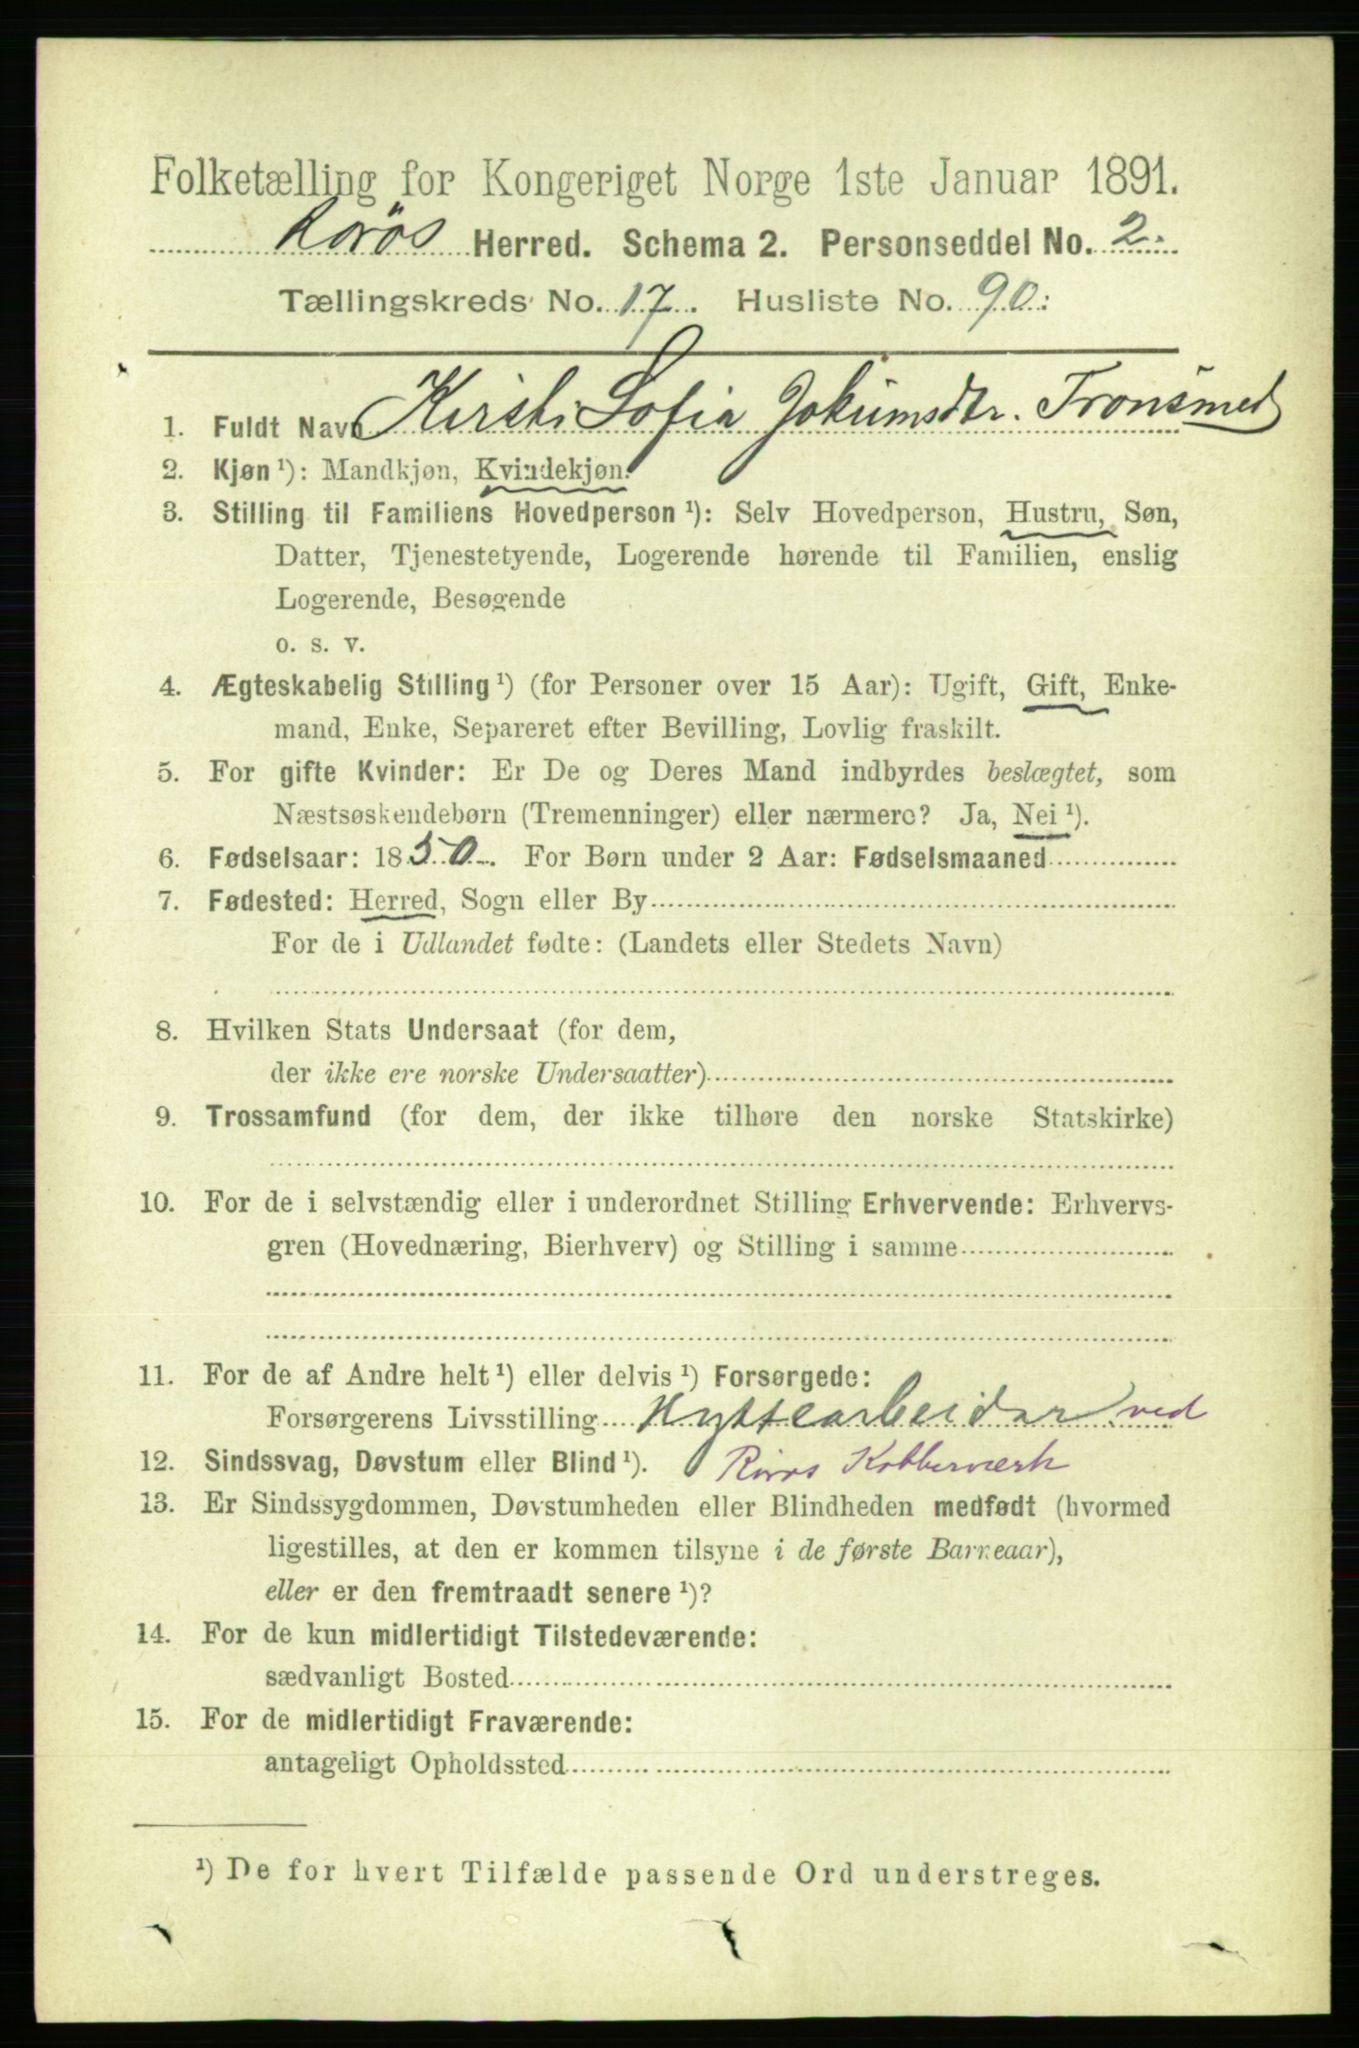 Folketælling for Kongeriget Norge 1ste Januar 1891.
Røròs Herred. Schema 2. Personseddel No. 2.
Tællingskreds No. 17. Husliste No. 90.
1. Fuldt Navn Kirsti Sofia Jokumsdtr. Tronsmed
2. Kjøn ¹): Mandkjøn, Kvindekjøn.
3. Stilling til Familiens Hovedperson ¹): Selv Hovedperson, Hustru, Søn,
Datter, Tjenestetyende, Logerende hørende til Familien, enslig
Logerende, Besøgende
o. s. v.
4. Ægteskabelig Stilling ¹) (for Personer over 15 Aar): Ugift, Gift, Enke-
mand, Enke, Separeret efter Bevilling, Lovlig fraskilt.
5. For gifte Kvinder: Er De og Deres Mand indbyrdes beslægtet, som
Næstsøskendebørn (Tremenninger) eller nærmere? Ja, Nei ¹).
6. Fødselsaar: 1850. For Børn under 2 Aar: Fødselsmaaned
7. Fødested: Herred, Sogn eller By
For de i Udlandet fødte: (Landets eller Stedets Navn)
8. Hvilken Stats Undersaat (for dem,
der ikke ere norske Undersaatter)
9. Trossamfund (for dem, der ikke tilhøre den norske Statskirke)
10. For de i selvstændig eller i underordnet Stilling Erhvervende: Erhvervs-
gren (Hovednæring, Bierhverv) og Stilling i samme
11. For de af Andre helt ¹) eller delvis ¹) Forsørgede:
Forsørgerens Livsstilling Hyttearbeidar ved
12. Sindssvag, Døvstum eller Blind ¹). Røros Kobberværk
13. Er Sindssygdommen, Døvstumheden eller Blindheden medfødt (hvormed
ligestilles, at den er kommen tilsyne i de første Barneaar),
eller er den fremtraadt senere ¹)?
14. For de kun midlertidigt Tilstedeværende:
sædvanligt Bosted
15. For de midlertidigt Fraværende:
antageligt Opholdssted
¹) De for hvert Tilfælde passende Ord understreges.